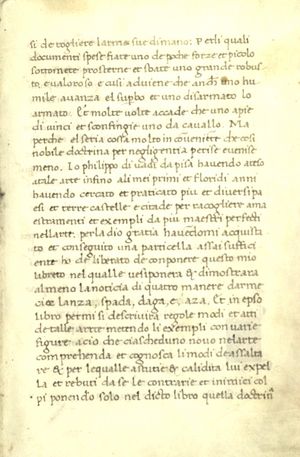 si de togliere larma sue di mano: Per li quali
documenti spese fiate uno de poche forze et picolo
sottomete prosterne et sbate uno grande robus
to, e valoroso e cusi adviene che anch uno hu
mile avanza el supbo et uno disarmato lo
armato. Et molte volte accade che uno apie
di vinci et sconfingie uno da cavallo. Ma
perche el seria cossa molto inconveniete che cosi
nobile doctrina per negligentia perise e venise
meno. Io philippo di vadi da pisa havendo atteso
atale arte insino ali mei primi et floridi anni
havendo cercato et praticato piu et diversi pa
esi et terre castelle e citade per racogliere ama
estramenti et exempli da piu maestri perfecti
nellarte: per la dio gratia havedomi acquista
to et conseguito una particella assai suffici
ente ho deliberato de conponere questo mio
libreto nel qualle ve si ponera & dimostrara
almeno la noticia di quatro manere darme
cioe lanza, spada, daga, e, aza. Et in epso
libro per mi se descrivera regole modi et atti
de talle arte metendo li exempli con varie
figure acio che ciascheduno novo nelarte
comprehenda et cognosca li modi de assalta
re & per le qualle astutie & calidita lui expel
la et rebuti da se le contrarie et inimici col
pi ponendo solo nel dicto libro quella doctrin